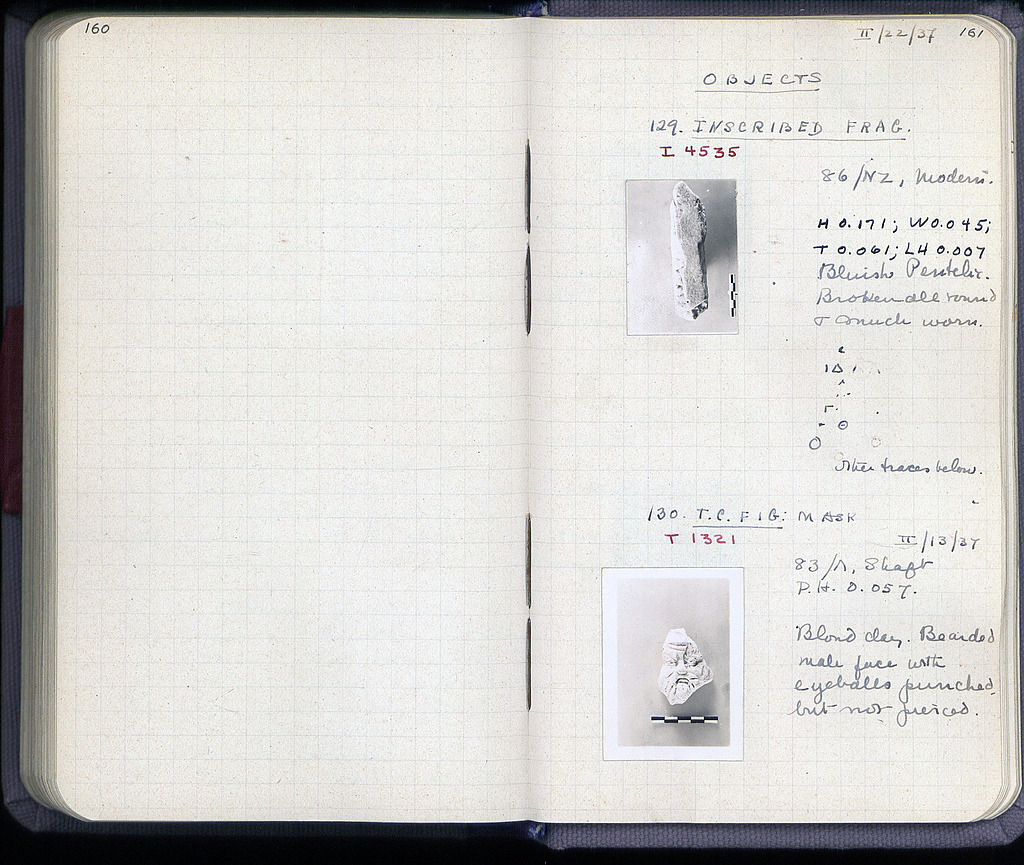 160
II/22/37 161
OBJECTS
129. INSCRIBED FRAG.
I 4535
86/NZ, Modern.
H 0.171; W 0.045;
T 0.061; LH 0.007
Bluish Pentelic.
Broken all round
& much worn.
Other traces below.
130. T.C. FIG: MASK
T 1321
II/13/37
83/Λ, Shaft
P.H. 0.057.
Blond clay. Bearded
male face with
eyeballs punched,
but not pierced.